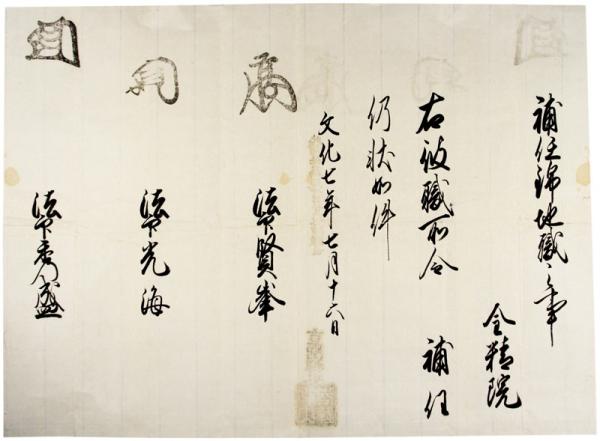 補任錦地職之事
金精院
右彼職所令 補任
仍状如件
文化七年七月十六日
法下賢峯
法下光海
法下秀盛